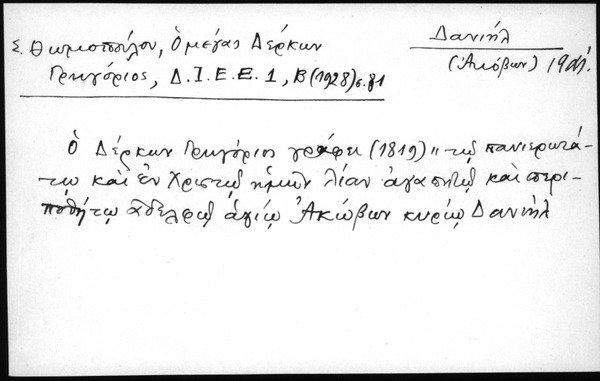 Σ. Θωμοπούλου, Ὁ μέγας Δέρκων
Γρηγόριος, Δ.Ι.Ε.Ε. 1, Β (1928) σ. 81
Δανιήλ
(Ἀκόβων)
Ὁ Δέρκων Γρηγόριος γράφει (1819) "τῷ πανιερωτά-
τῳ καὶ ἐν Χριστῷ ἡμῶν λίαν ἀγαπητῷ καὶ περι-
ποθήτῳ ἀδελφῷ ἁγίῳ Ἀκόβων κυρίῳ Δανιήλ